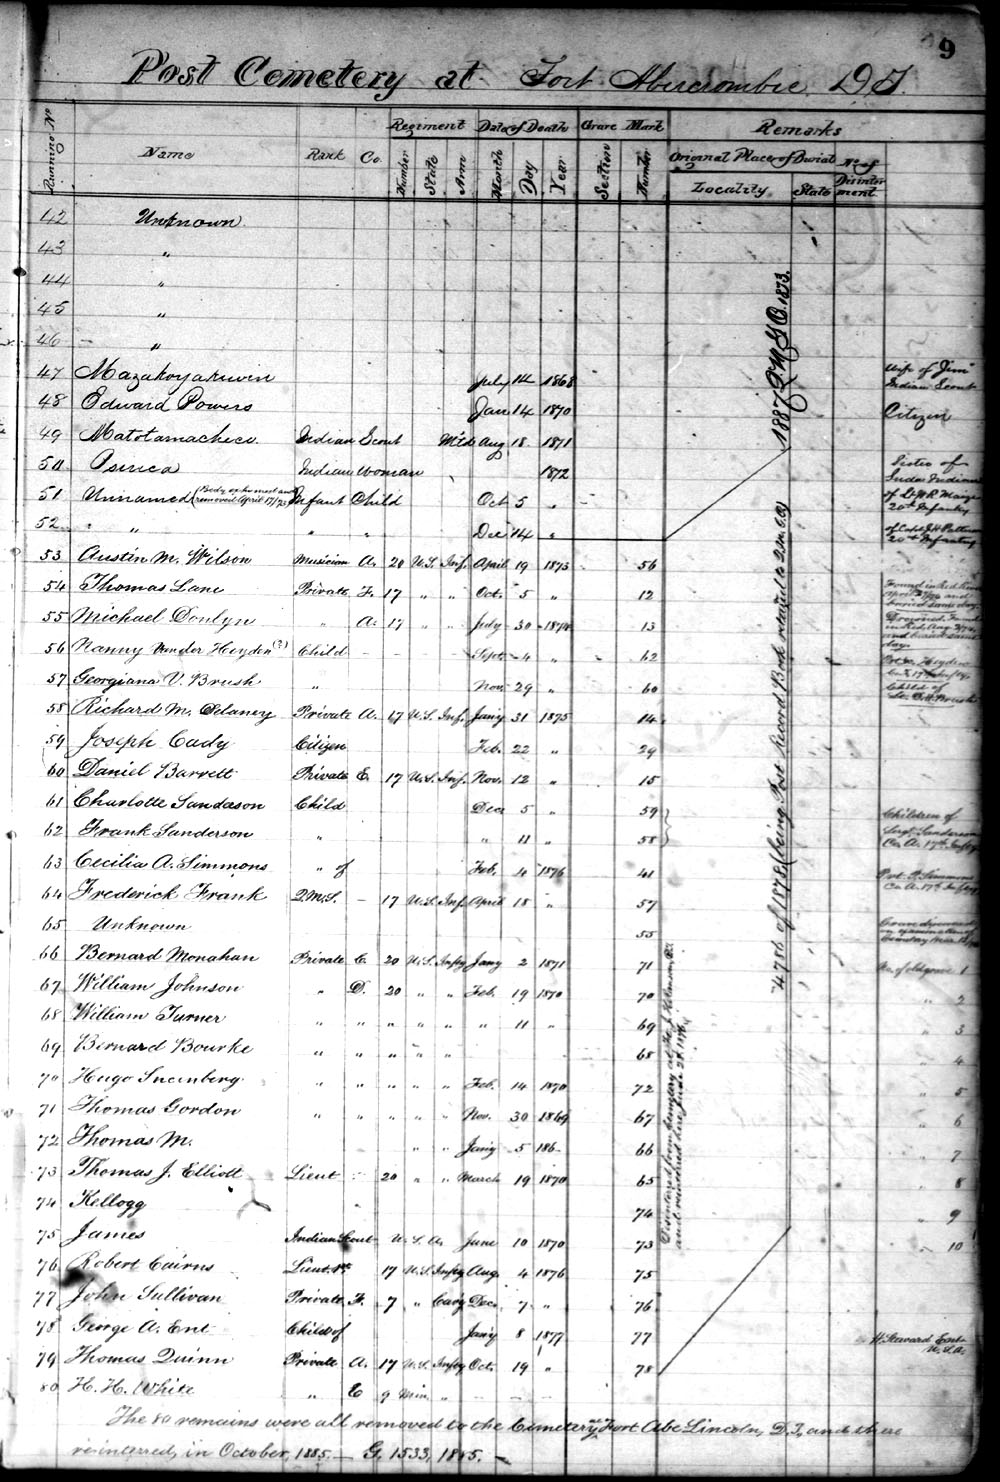 9
Post Cemetery at Fort Abercrombie D.T.
Running No Name Rank Co. Regiment Date of Death Grave Mark Remarks
Number State Arm Month Day Year Section Number Original Place of Burial No of Disinterment
Locality State
42 Unknown
43 "
44 "
45 "
46 "
47 Mazakoyakuwin July 14 1868 Wife of "Jim" Indian Scout
48 Edward Powers Jan 14 1870 Citizen
49 Matotamacheca Indian Scout Mtd Aug 18 1871
50 Indian woman 1872 Sister of Indian
51 Unnamed (Body exhumed and removed April 17/73) Infant Child Oct 5 " of Lt W.R. Maize 20th Infantry
52 " " " " Dec 14 " of Capt J.H. Patterson 20th Infantry
53 Austin M. Wilson Musician A. 20 U.S. Inf. April 19 1873 56
54 Thomas Lane Private F. 17 " " Oct. 5 " 12 Found in Red River and buried same day
55 Michael Donlyn " A. 17 " " July 30 1874 13 Drowned. Found in Red, Aug 2/74, and buried same day.
56 Nanny Vander Heyden (?) Child Sept 4 " 62
57 Georgiana V. Brush " Nov 29 " 60 Child of
58 Richard M. Delaney Private A. 17 U.S. Inf. Jany 31 1875 14
59 Joseph Cady Citizen Feb. 22 " 29
60 Daniel Barrett Private E. 17 U.S. Inf. Nov. 12 " 15
61 Charlotte Sanderson Child Dec 5 " 59 Children of Sergt. Sanderson Co. A. 17th Infty
62 Frank Sanderson " " 11 " 58
63 Cecilia A. Simmons " of Feb. 4 1876 41 Pvt. Simmons Co A. 17th Infty
64 Frederick Frank Q.M.S. - 17 U.S. Inf. April 18 " 57
65 Unknown 55 Grave discovered on examination of Cemetery
66 Bernard Monahan Private C. 20 U.S. Infty Jany 2 1871 71 No. of old grave 1
67 William Johnson " D. 20 " " Feb. 19 1870 70 " 2
68 William Turner " " " " " " 11 " 69 " 3
69 Bernard Bourke " " " " " 68 " 4
70 Hugo " " " " " Feb. 14 1870 72 " 5
71 Thomas Gordon " " " " " Nov. 30 1869 67 " 6
72 Thomas M. " " Jany 5 186- 66 " 7
73 Thomas J. Elliott Lieut 20 " " March 19 1870 65 " 8
74 Kellogg " 74 " 9
75 James Indian Scout U.S.A. June 10 1870 73 " 10
76 Robert Cairns Lieut 1st 17 U.S. Infty Aug. 4 1876 75
77 John Sullivan Private F. 7 " Cavy Dec. 7 " 76
78 George A. Ent Child of Jan'y 8 1877 77 H. Steward Ent U.S.A.
79 Thomas Quinn Private A. 17 U.S. Infty Oct. 19 " 78
80 H. H. White " E 9 Min. " - - -
4786 of 1878 (being Post Record Book returned to 2 1887 Q.M.G.O. 1873.
Disinterred from Cemetery at and reinterred here June 28, 1876
The 80 remains were all removed to the Cemetery at Fort Abe Lincoln, D.T., and there
reinterred, in October, 1885. — G. 1533, 1885. —